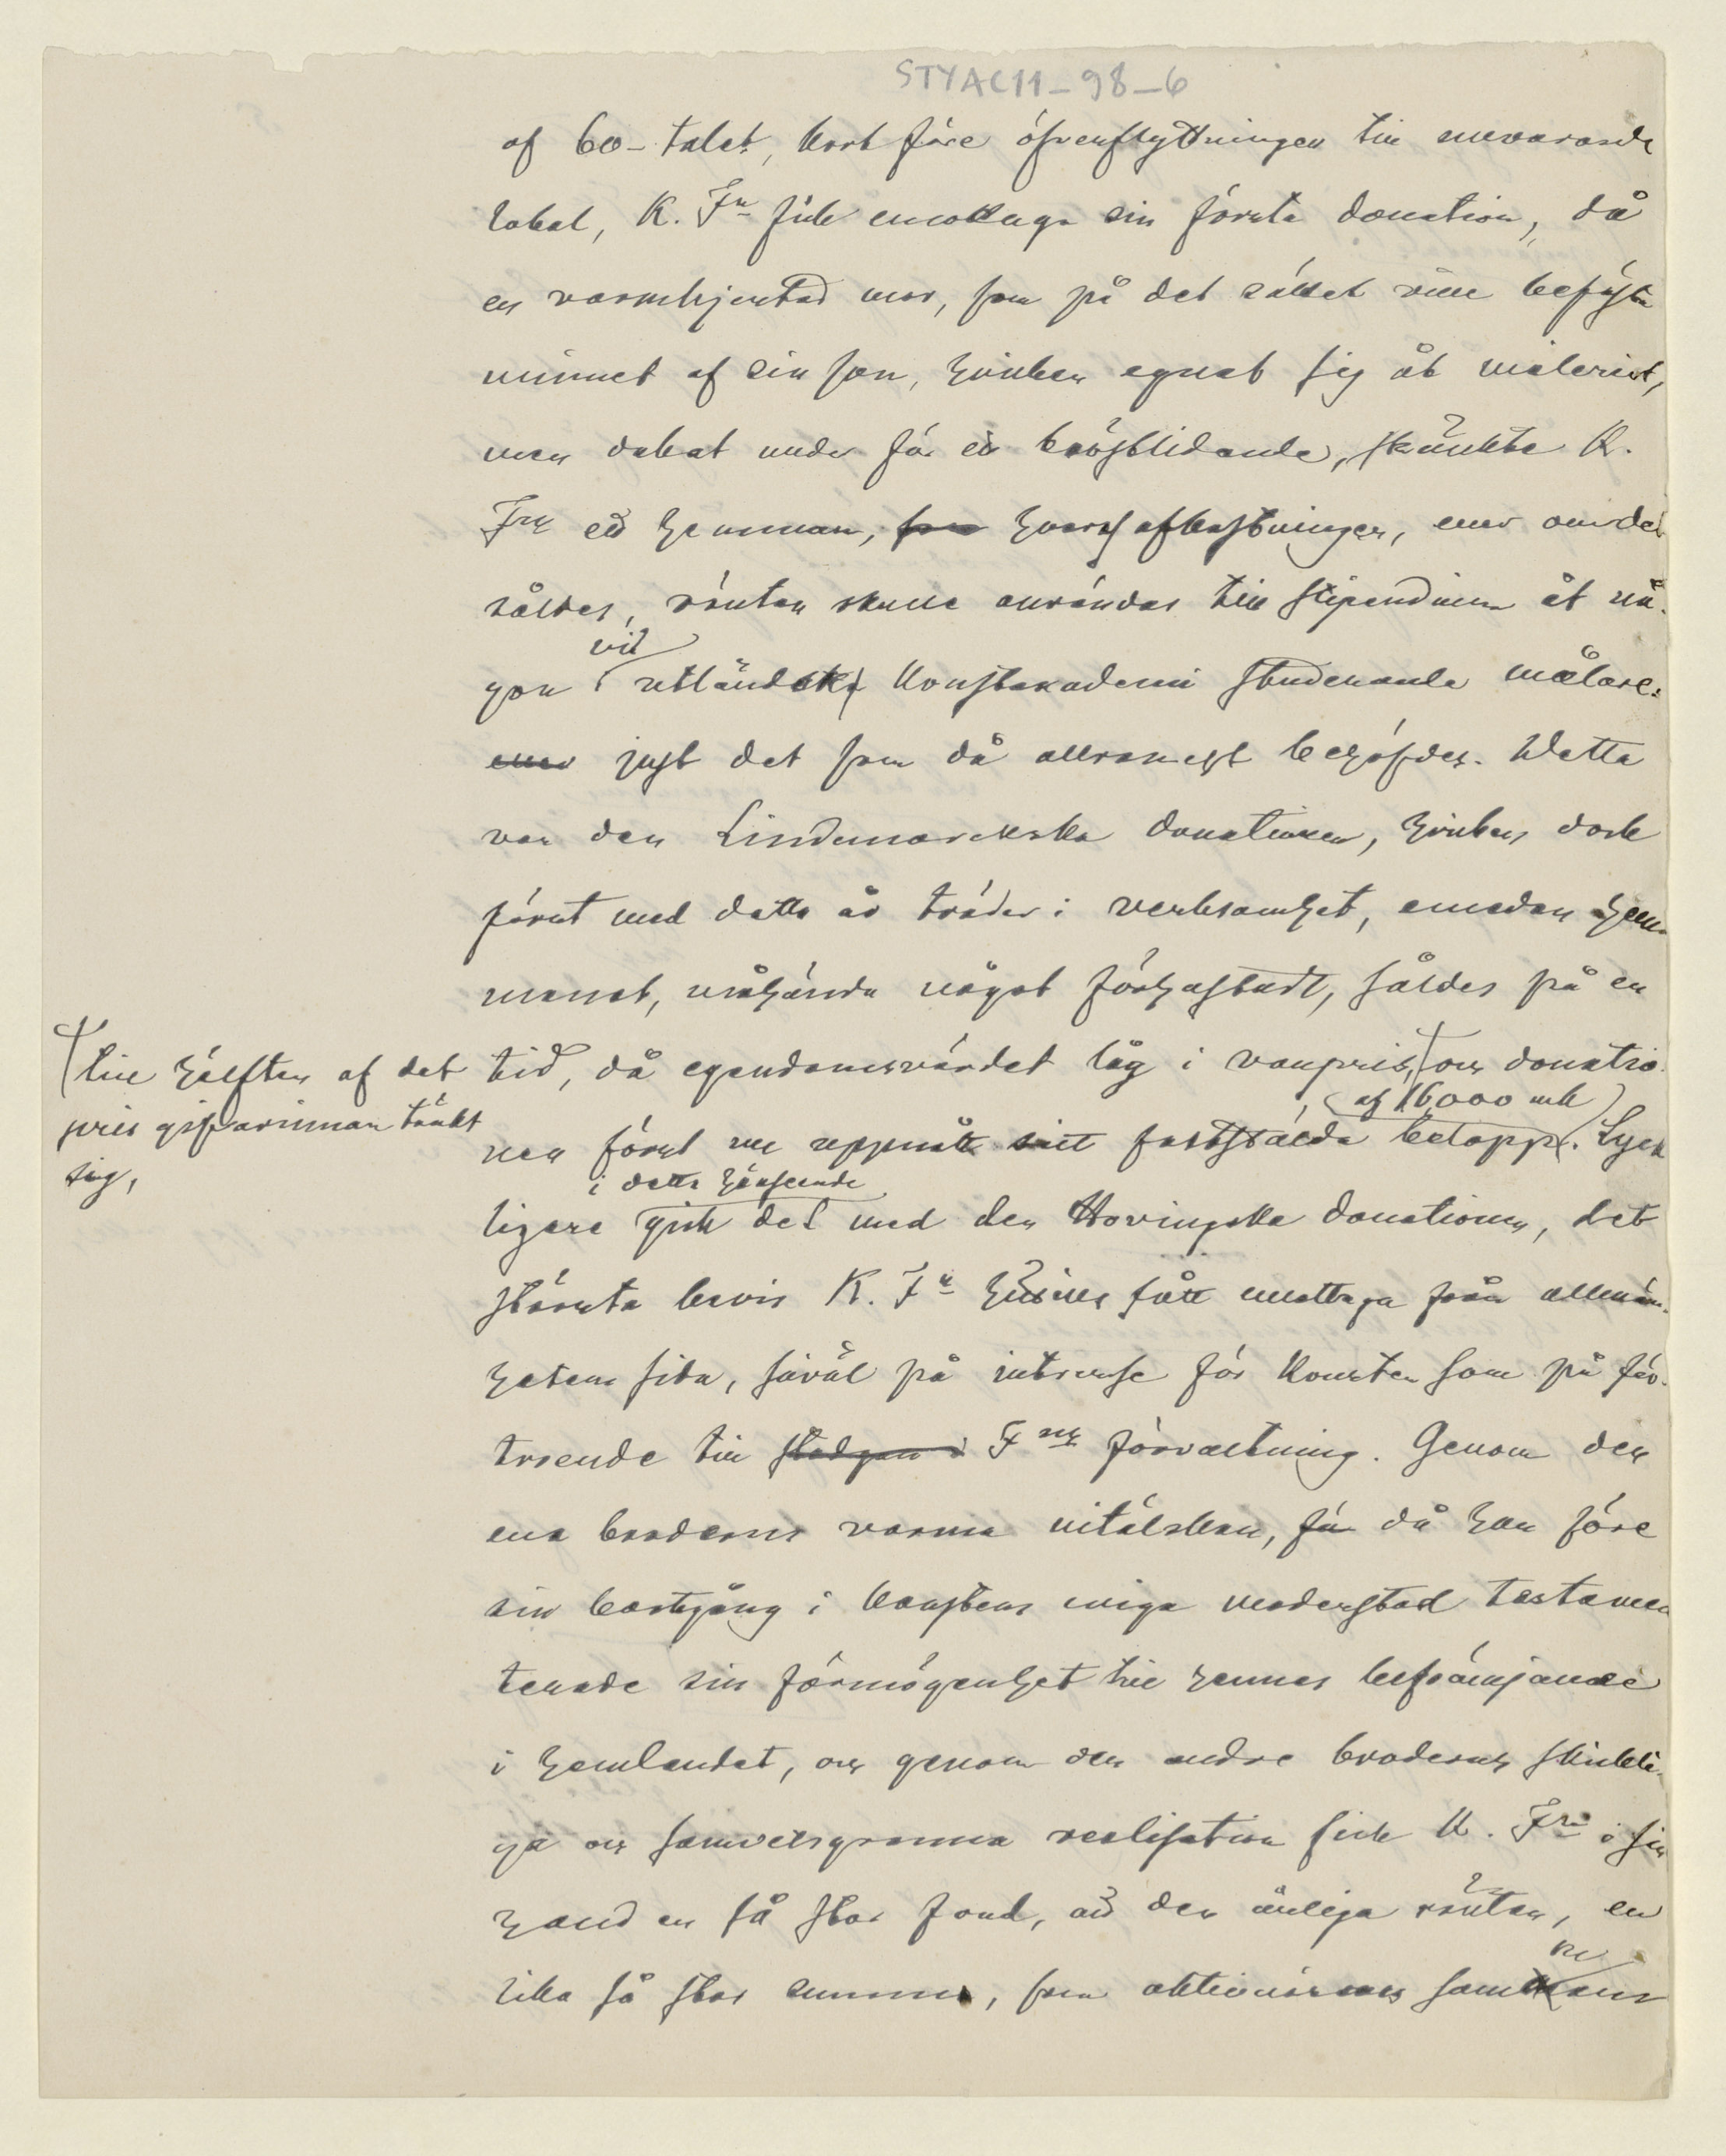 STYAC11_98_6
af 60-talet, kort före öfverflyttningen till nuvarande
lokal, K. Fn fick emottaga sin första donation, då
en varmhjertad mor, som på det sättet ville befästa
minnet af sin son, hvilken egnat sig åt måleriet,
men dukat under för ett bröstlidande, skänkte K.
Fng ett hemman, som hvars afkastningen, eller om det
såldes, räntan skulle användas till stipendium åt nå-
gon vid utländsk konstakademi studerande målare:
eller just det som då allramest behöfdes. Detta
var den Lindemarckska donationen, hvilken dock
först med detta år träder i verksamhet, emedan hem-
manet, måhända något förhastadt, såldes på en
tid, då egendomsvärdet låg i vanpris, och donatio-
† till hälften af det
pris gifvarinnan tänkt
sig,
nen först nu uppnått sitt faststälda belopp (af 16,000 mk). Lyck
ligare i detta hänseende gick det med den Hovingska donationen, det
största bevis K. Fn hittills fått mottaga från allmän-
hetens sida, såväl på intresse för konsten som på för-
troende till stadgan i Fngs förvaltning. Genom den
ena broderns varma nitälskan, då han före
sin bortgång i konstens eviga moderstad testamen
terade sin förmögenhet till hennes befrämjande
i hemlandet, och genom den andre broderns skickli-
ga och samvetsgranna realisation fick K. Fng i sin
hand en så stor fond, att den årliga räntan, en
lika så stor summa, som aktionärernas